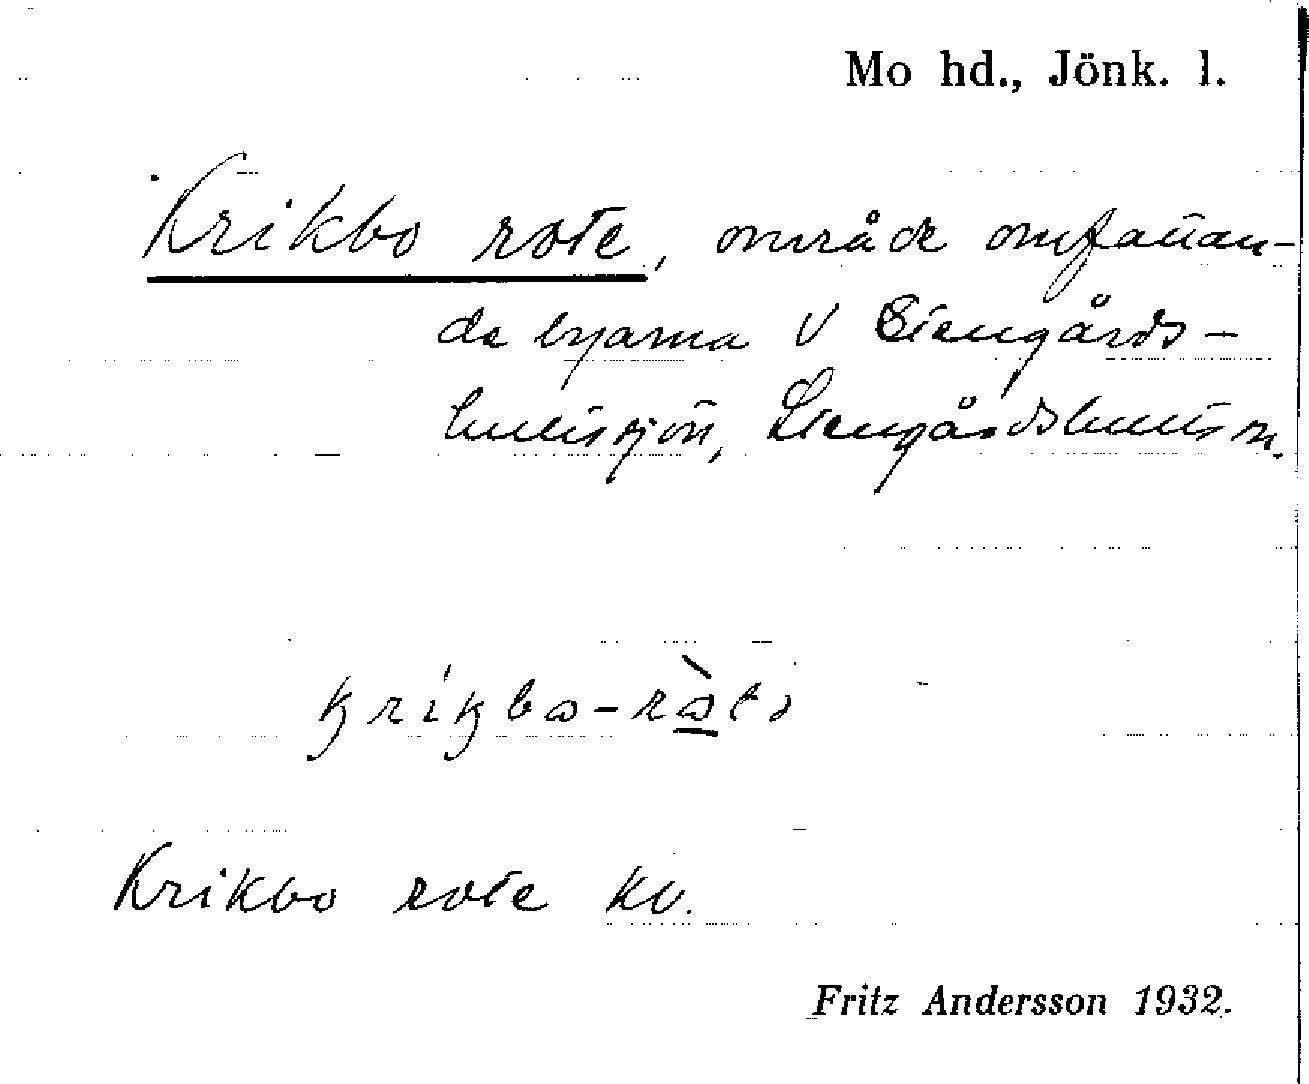 Mo hd., Jönk. l.
Krikbo rote, område omfattan-
de byarna V Stengårds-
hultsjön, Stengårdshults sn.
krikbo-
Krikbo rote kv.
Fritz Andersson 1932.